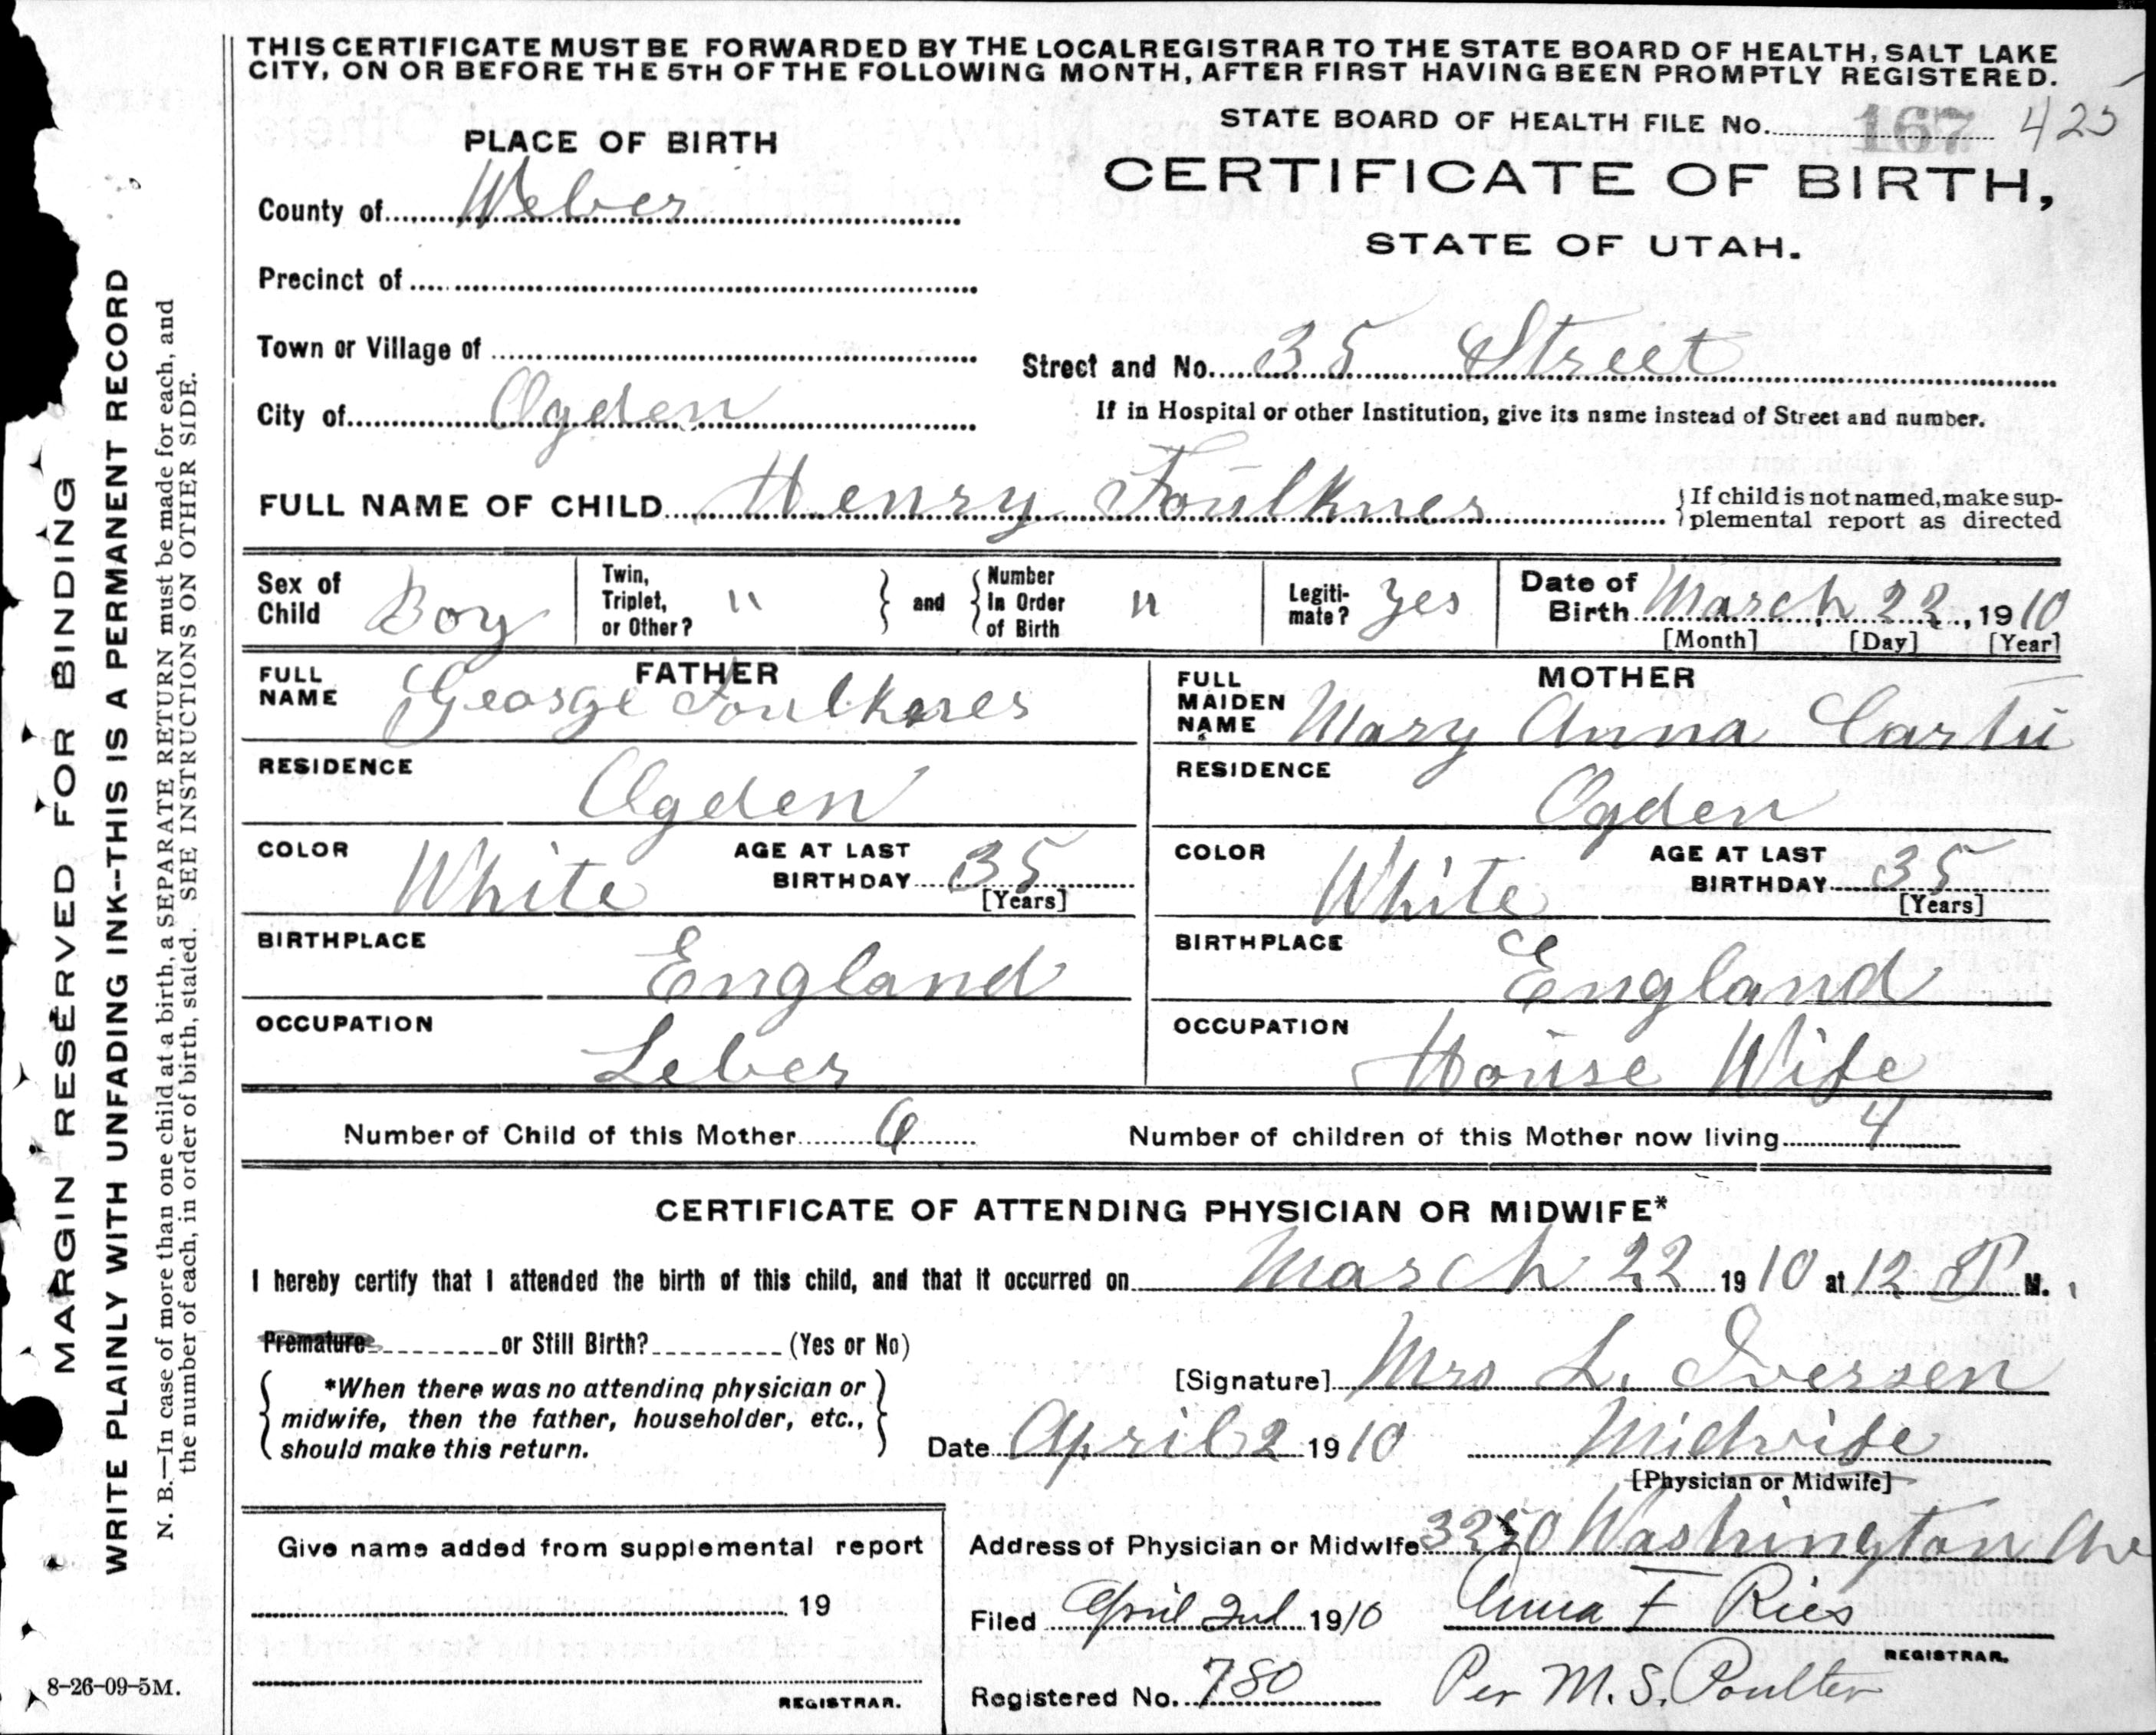 THIS CERTIFICATE MUST BE FORWARDED BY THE LOCAL REGISTRAR TO THE STATE BOARD OF HEALTH, SALT LAKE
CITY, ON OR BEFORE THE 5TH OF THE FOLLOWING MONTH, AFTER FIRST HAVING BEEN PROMPTLY REGISTERED.
STATE BOARD OF HEALTH FILE No. 167 425
PLACE OF BIRTH
CERTIFICATE OF BIRTH,
STATE OF UTAH.
County of Weber
Precinct of
Town or Village of
Street and No. 35 Street
City of Ogden
If in Hospital or other Institution, give its name instead of Street and number.
FULL NAME OF CHILD Henry Foulkner
If child is not named, make sup-
plemental report as directed
Sex of Child Boy
Twin, Triplet, or Other? "
and
Number In Order of Birth "
Legiti-mate? Yes
Date of Birth March 22, 1910
[Month] [Day] [Year]
FATHER
FULL NAME George Foulkner
MOTHER
FULL MAIDEN NAME Mary Anna
RESIDENCE Ogden
RESIDENCE Ogden
COLOR White
AGE AT LAST BIRTHDAY 35
[Years]
COLOR White
AGE AT LAST BIRTHDAY 35
[Years]
BIRTHPLACE England
BIRTHPLACE England
OCCUPATION Leber
OCCUPATION House Wife
Number of Child of this Mother 6
Number of children of this Mother now living 4
CERTIFICATE OF ATTENDING PHYSICIAN OR MIDWIFE*
I hereby certify that I attended the birth of this child, and that it occurred on March 22 1910 at 12 P M.
Premature or Still Birth? (Yes or No)
[Signature] Mrs L. Iversen
*When there was no attending physician or
midwife, then the father, householder, etc.,
should make this return.
Date April 2 1910 Midwife
[Physician or Midwife]
Give name added from supplemental report
19
REGISTRAR.
Address of Physician or Midwife Washington Ave
Filed April 2nd 1910 Anna F Ries
REGISTRAR.
Registered No. 780 Per M. S. Poulter
MARGIN RESERVED FOR BINDING
WRITE PLAINLY WITH UNFADING INK--THIS IS A PERMANENT RECORD
N. B.—In case of more than one child at a birth, a SEPARATE RETURN must be made for each, and
the number of each, in order of birth, stated. SEE INSTRUCTIONS ON OTHER SIDE.
8-26-09-5M.